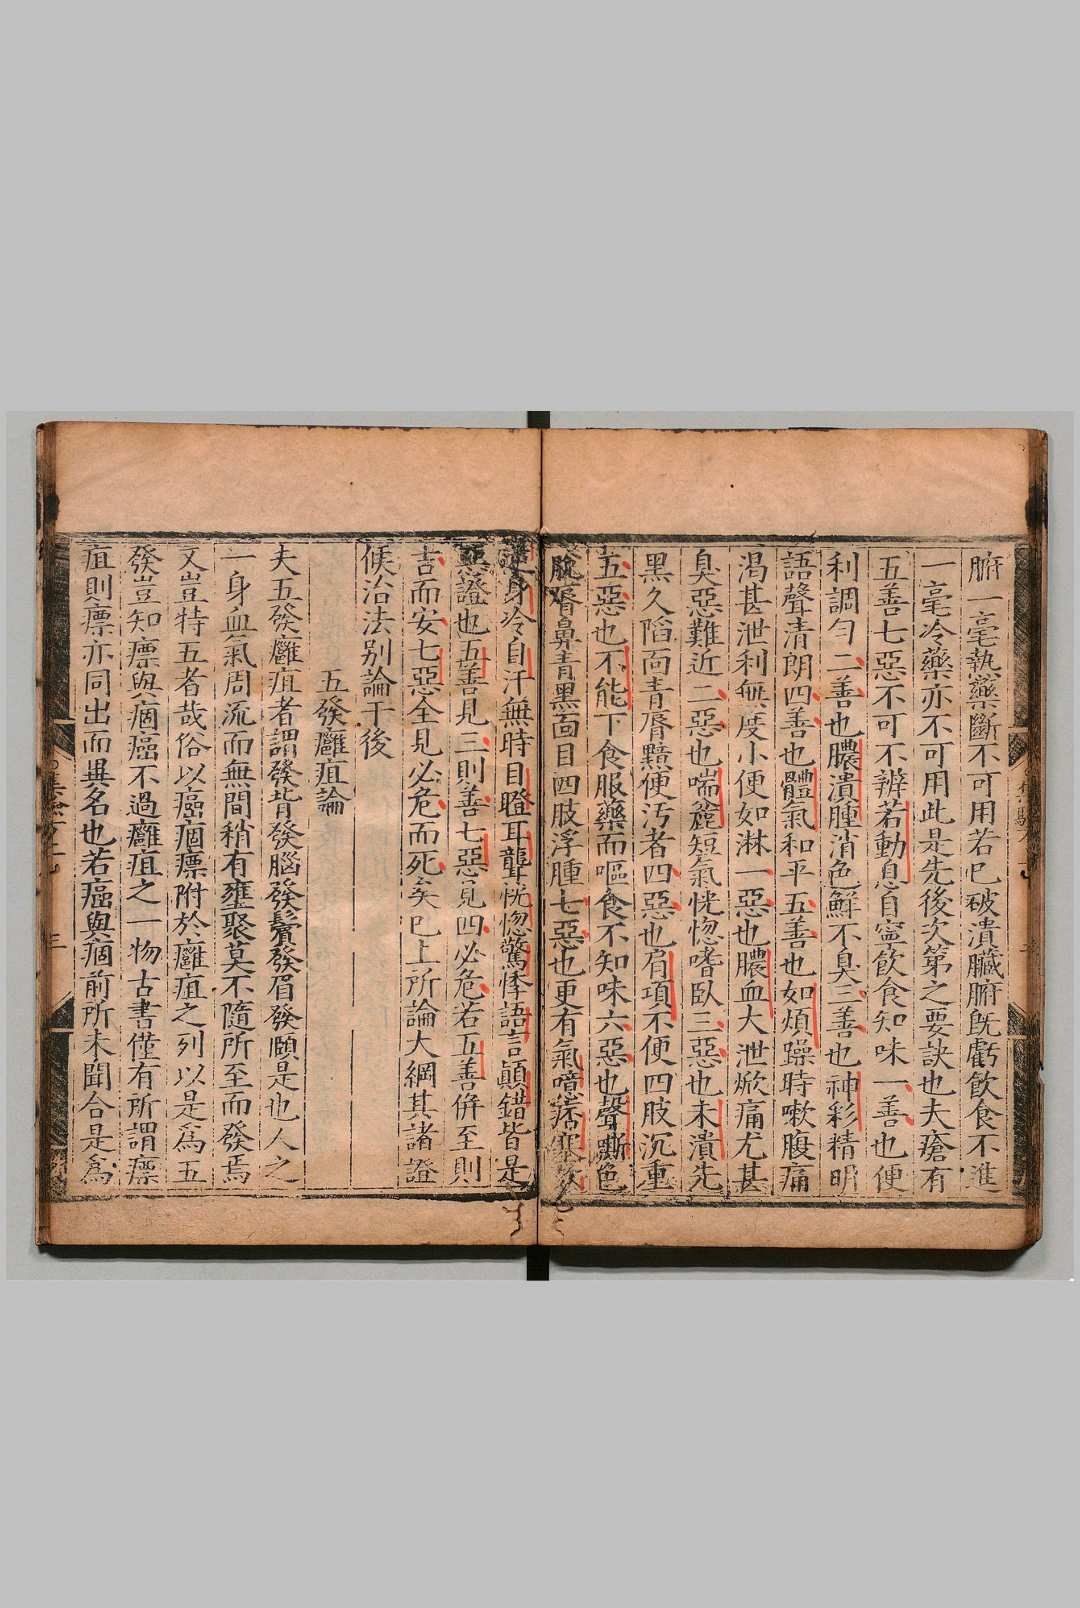 腑一毫熱藥斷不可用若已破潰臟腑旣虧飲食不進
一毫冷藥亦不可用此是先後次第之要訣也夫瘡有
五善七惡不可不辨若動息自寧飲食知味一善也便
利調勻二善也膿潰腫消色鮮不臭三善也神彩精明
語聲清朗四善也體氣和平五善也如煩躁時嗽腹痛
渴甚泄利無度小便如淋一惡也膿血大泄焮痛尤甚
臭惡難近二惡也喘麄短氣恍惚嗜臥三惡也未潰先
黑久陷面青唇黯便汚者四惡也肩項不便四肢沉重
五惡也不能下食服藥而嘔食不知味六惡也聲嘶色
脫唇鼻青黑面目四肢浮腫七惡也更有氣噫痞塞欬
逆身冷自汗無時目瞪耳聾恍惚驚悸語言顚錯皆是
惡證也五善見三則善七惡見四必危若五善倂至則
吉而安七惡全見必危而死矣已上所論大綱其諸證
候治法别論于後
五發癰疽論
夫五發癰疽者謂發背發腦發鬢發眉發頤是也人之
一身血氣周流而無間稍有壅聚莫不隨所至而發焉
又豈特五者哉俗以癌痼瘭附於癰疽之列以是爲五
發豈知瘭與痼癌不過癰疽之一物古書僅有所謂瘭
疽則瘭亦同出而異名也若癌與痼前所未聞合是爲